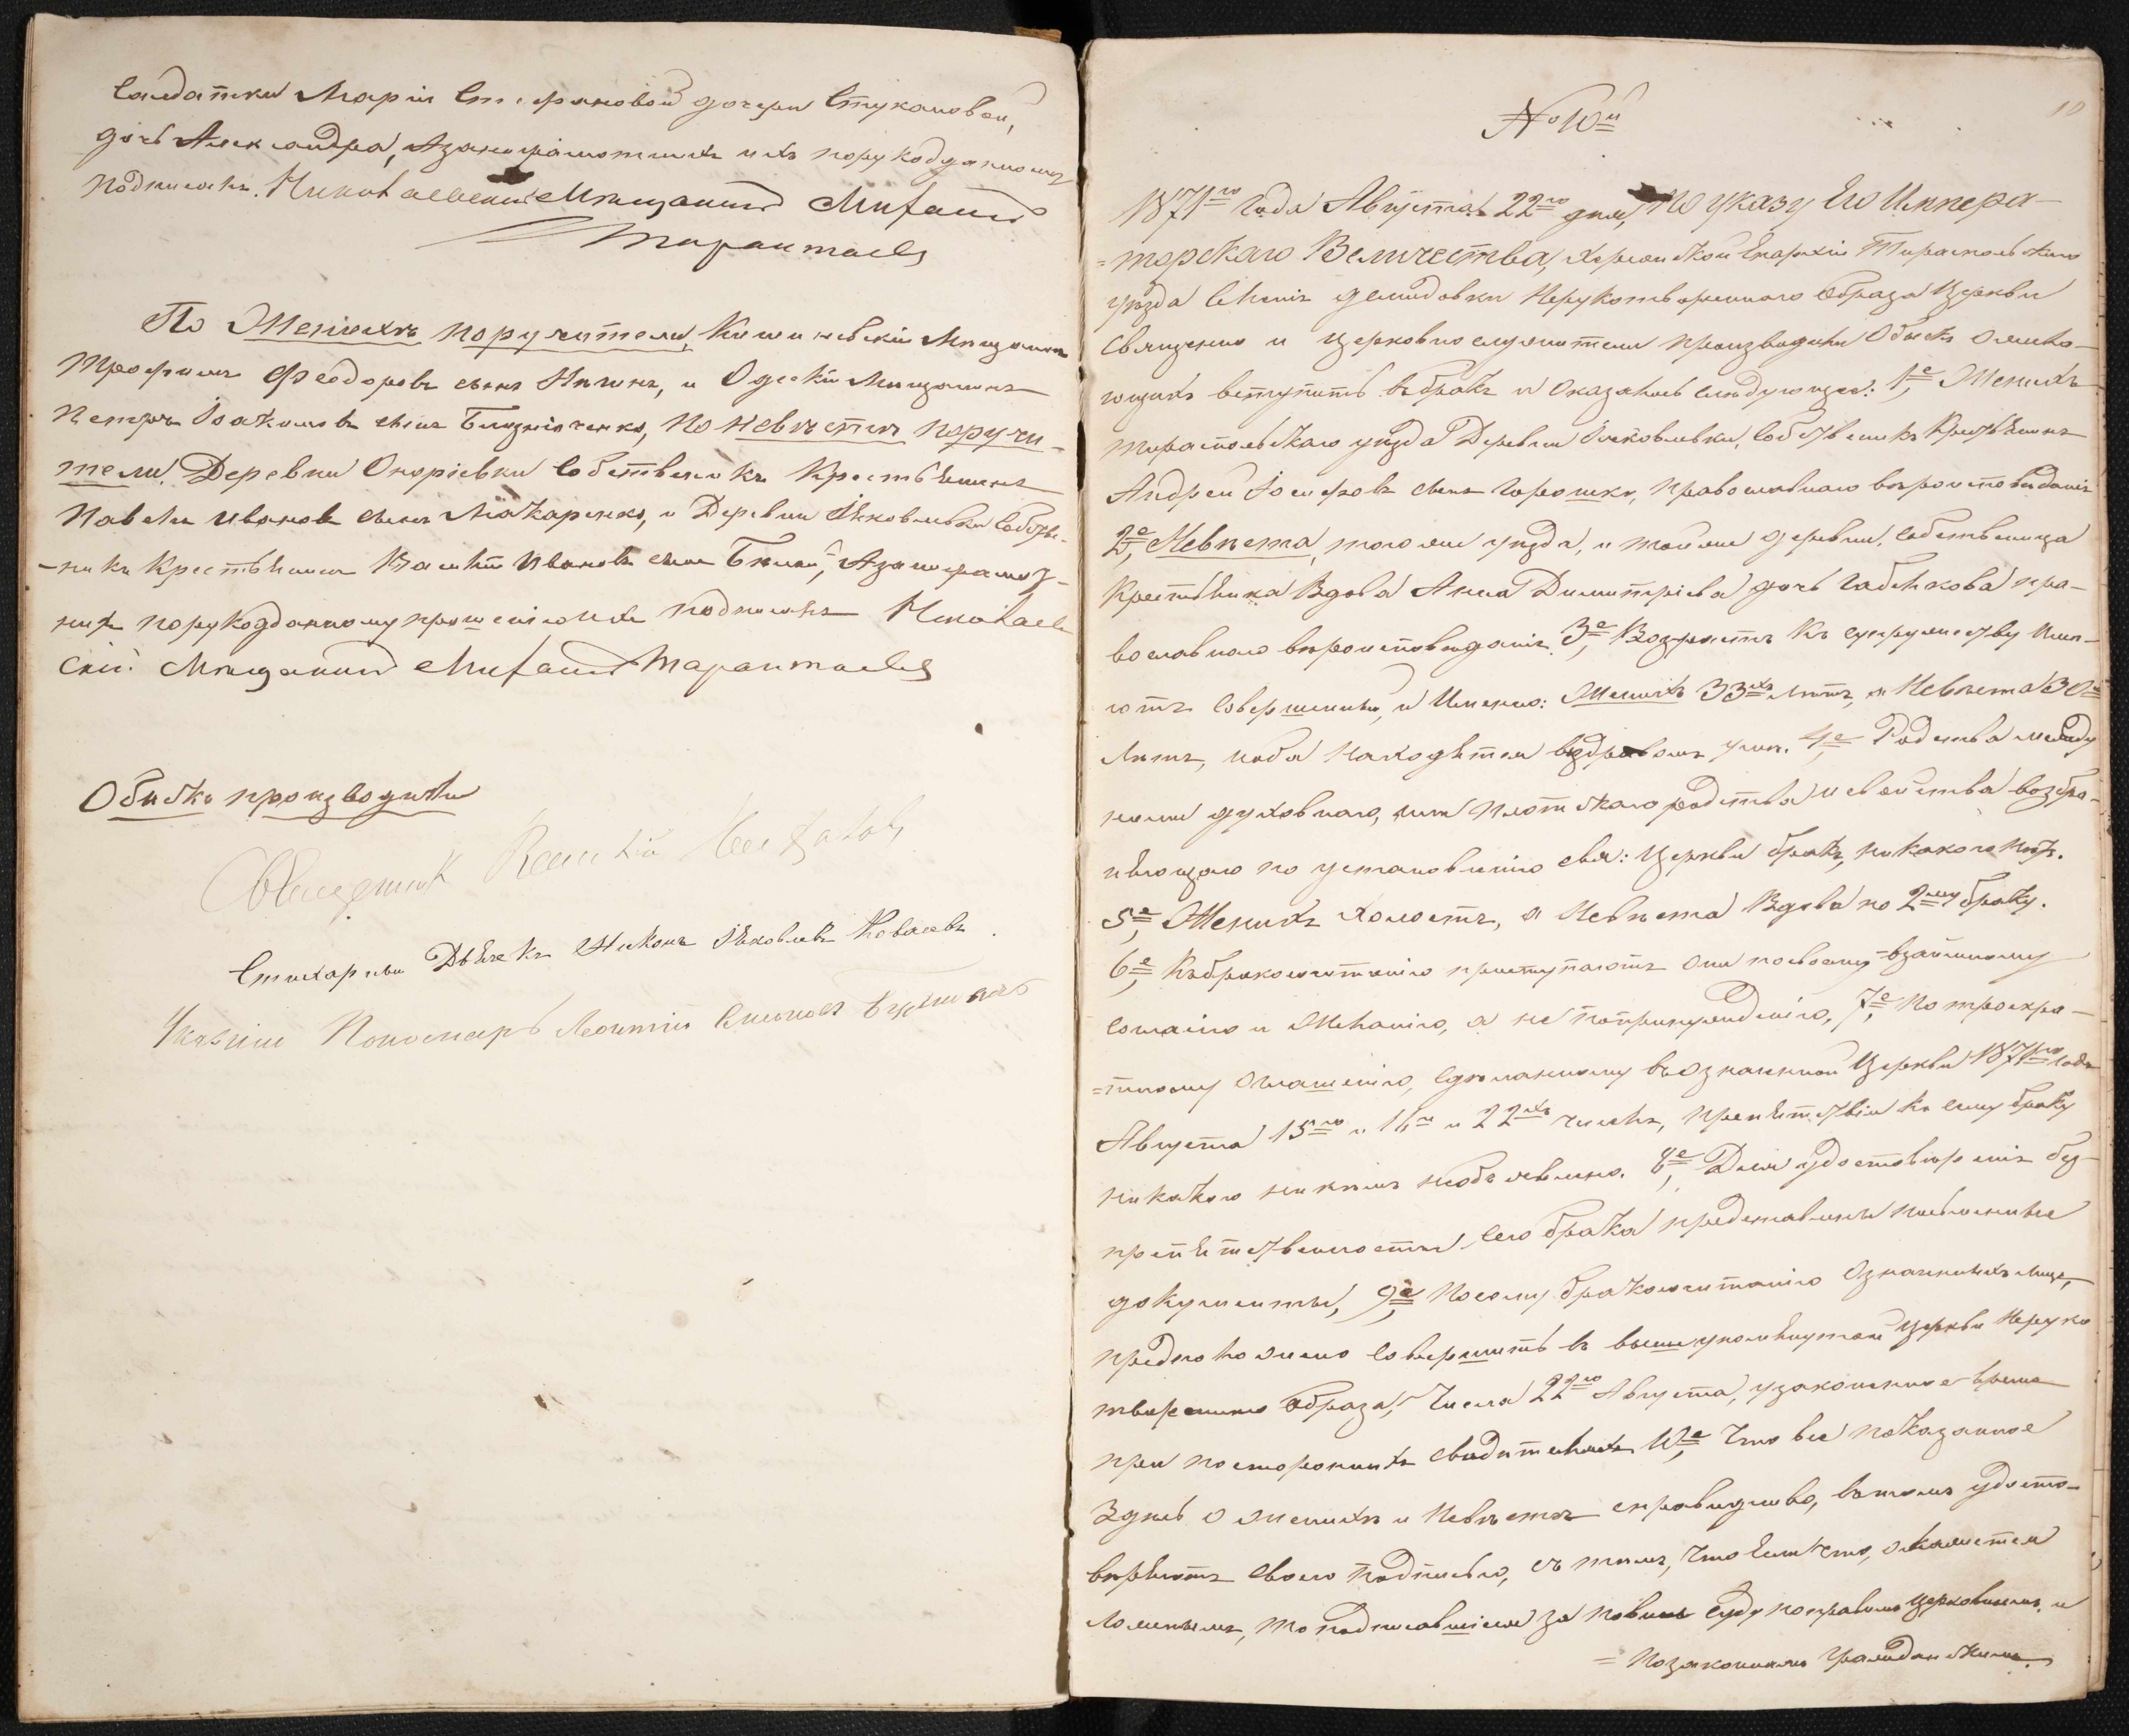 Солдатки Маріи Стефановой дочери Стукановой,
дочь Александра, Азанеграмотныхъ ихъ порукодданному
подписалъ. Николаевскій Мещанинъ Михаилъ
Тарантаевъ
По Женихѣ поручители, Кишиневскій Мещанинъ
Трофимъ Феодоровъ сынъ , и Одескій Мещанинъ
Петръ Іоакимовъ сынъ , по невѣстѣ поручи-
тели, Деревни Онорiевки Собственикъ Крестьянинъ
Павелъ Ивановъ сынъ Макаренко, и Деревни Яковлевки Собстве-
-никъ Крестьянинъ Василій Ивановъ сынъ Бѣлый, Азанеграмот-
ныхъ порукодданному прошенію ихъ подписалъ Николаев
скій Мещанинъ Михаилъ Тарантаевъ
Обыскъ производили
Священникъ Василій
Стихарный Дьячекъ Никонъ Яковлевъ Ковалевъ.
Пономарь Леонтій Симоновъ
10
№ 10й
1871го Года Августа 22го дня, По указу Его Импера-
=торскаго Величества, Херсонской Епархіи Тираспольскаго
уѣзда Селенія Демидовки Нерукотвореннаго Образа Церкви
Священно и церковнослужители производили Обыскъ о желаю-
ющихъ вступить въ бракъ и оказалось слѣдующее: 1е, Женихъ
тираспольскаго уѣзда Деревни Яковлевки, Собственикъ Крестьянинъ
Андрей Іосифовъ сынъ Горошко, православнаго вѣроисповѣданія
2е, Невѣста, того же уѣзда, и той же деревни, собственица
Крестьянка Вдова Анна Димитріева дочь пра-
вославнаго вѣроисповѣданія. 3е, Возрастъ къ супружеству Имѣ-
ютъ совершенный, и Именно: Женихъ 33хъ лѣтъ, а Невѣста 30и
Лѣтъ, иоба находятся въздравомъ умѣ. 4е, Родства между
ними духовнаго, или плотскаго родства и свойства возбра-
няющаго по установленію свя: Церкви бракъ, никакого нѣтъ.
5е, Женихъ холостъ, а Невѣста Вдова по 2му браку.
6е, Къбракосочитанію приступаютъ они посвоему взаимному
согласію и желанію, а не попринужденію, 7е, По троекра-
=тному оглашенію, сдѣланному въозначенной Церкви 1871го года
Августа 15го и и 22хъ числъ, препятствія къ сему браку
никакого никѣмъ необъявлено. 8е, Для удостовѣренія без-
препятственности сего брака представлены писменные
документы, 9е, Посему бракосочитанію Означенныхъ лицъ,
предположено совершить въ вышеупомянутой церкви Неруко
твореннаго Образа, Числа 22го Августа, узаконенное время
при постороннихъ свидѣтеляхъ 10е, Что все показанное
Здѣсь о женихѣ и Невѣстѣ справедливо, втомъ удосто-
вѣряютъ своею подписью, съ тѣмъ, что если что, окажется
Ложнымъ, то подписавшіеся за повины суду поправиламъ церковнымъ и
= Позаконамъ гражданскимъ.